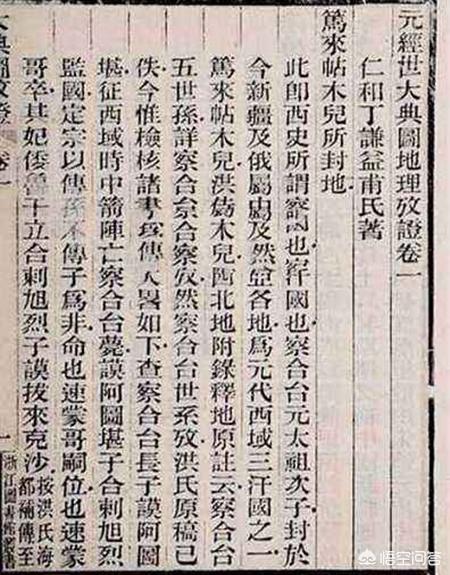 元經世大典圖地理攷證卷一
仁和丁謙益甫氏著
篤來帖木兒所封地
此卽西史所謂察也國也察合台元太祖次子封於
今新疆及俄屬及然各地爲元代西域三汗國之一
篤來帖木兒洪木兒西北地附錄釋地原註云察合台
五世孫詳察合台然察合台世系攷洪氏原稿已
佚今惟檢核諸書爲傳畧如下查察合台長子謨阿圖
堪征西域時中箭陣亡察合台薨謨阿圖堪子合剌旭烈
監國定宗以傳孫不傳子爲非命也速蒙哥嗣位也速蒙
哥卒其妃倭魯干立合剌旭烈子謨拔來克沙按洪氏海
都補傳至
大典圖攷證 卷一
一
浙江圖書館叢書
悟空问答